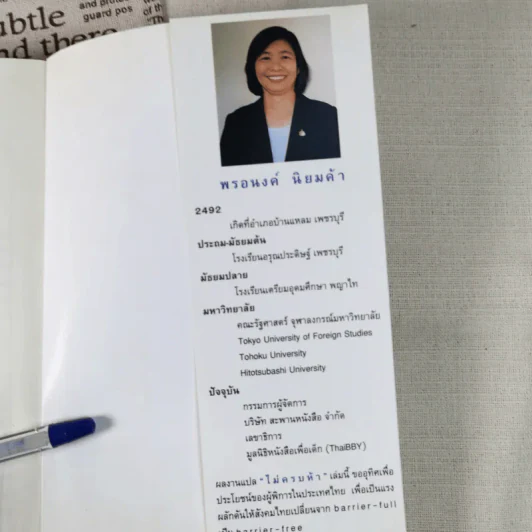 ubtle
nd there
and prote
guard pos
of th
"Th
พรอนงค์ นิยมค้า
2492
เกิดที่อำเภอบ้านแหลม เพชรบุรี
ประถม-มัธยมต้น
โรงเรียนอรุณประดิษฐ์ เพชรบุรี
มัธยมปลาย
โรงเรียนเตรียมอุดมศึกษา พญาไท
มหาวิทยาลัย
คณะรัฐศาสตร์ จุฬาลงกรณ์มหาวิทยาลัย
Tokyo University of Foreign Studies
Tohoku University
Hitotsubashi University
ปัจจุบัน
กรรมการผู้จัดการ
บริษัท สะพานหนังสือ จำกัด
เลขาธิการ
มูลนิธิหนังสือเพื่อเด็ก (ThaiBBY)
ผลงานแปล "ไม่ครบห้า" เล่มนี้ ขออุทิศเพื่อ
ประโยชน์ของผู้พิการในประเทศไทย เพื่อเป็นแรง
ผลักดันให้สังคมไทยเปลี่ยนจาก barrier-full
เป็น barrier-free